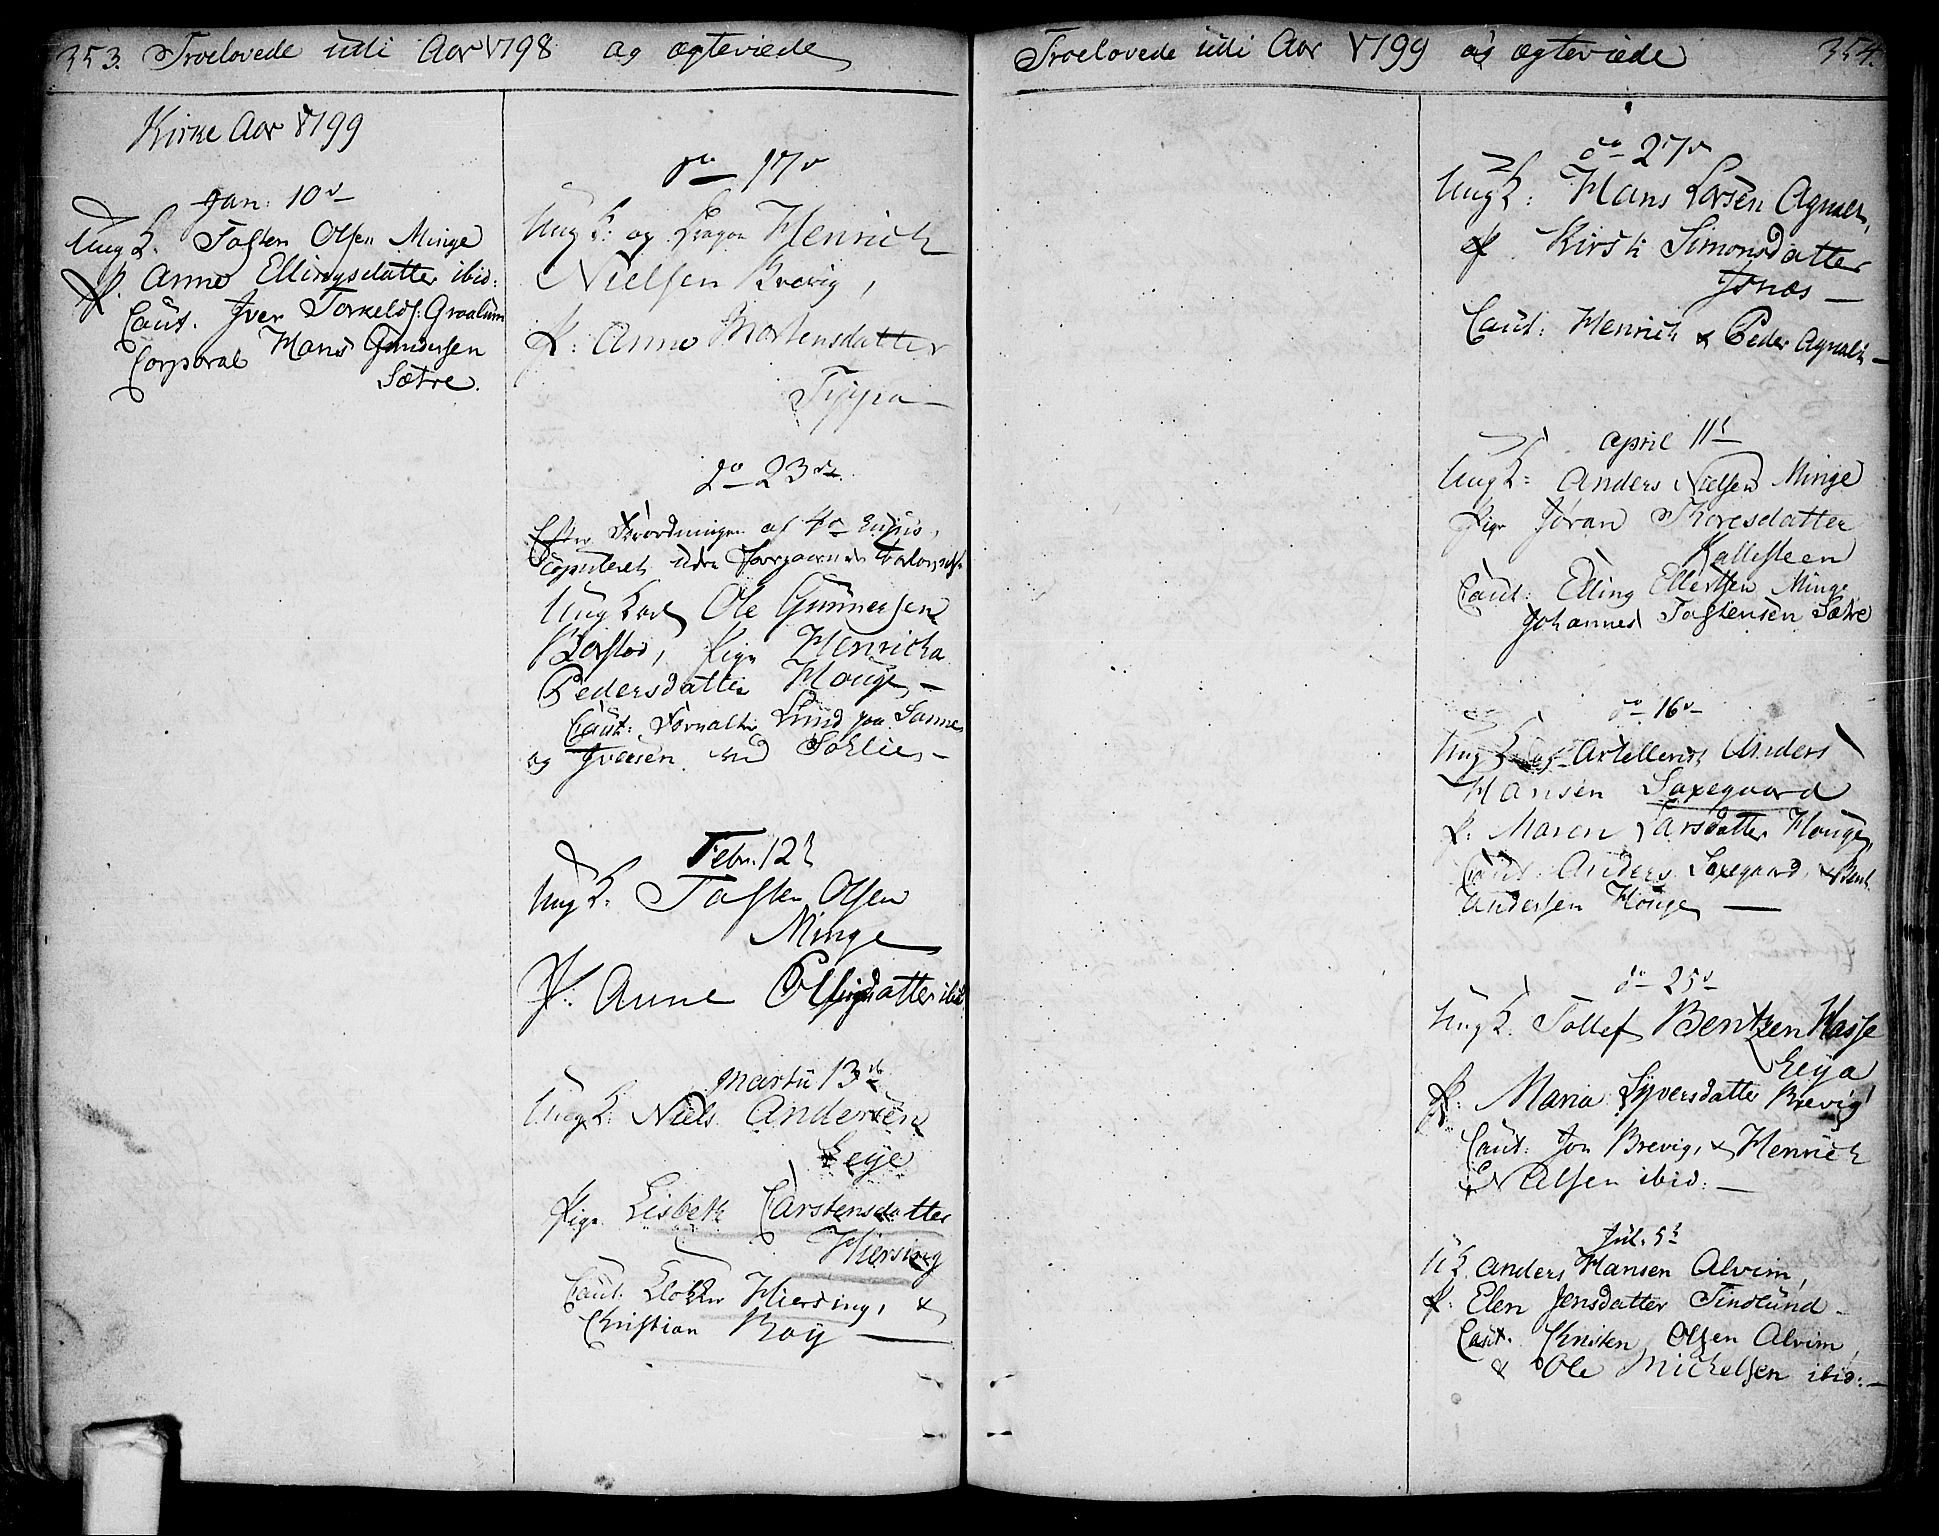 353. Troelovede udi Aar 1798 og ægteviede
Kirke Aar 1799
Jan: 10d
Ung K. Tosten Olsen Minge
P. Anne Ellingsdatter ibid:
Caut. Iver Torkelds: Graalum
Corporal Hans Gundersen
Sætre.
do 17d
Ung K: og Dragon Henrich
Nielsen Brevig,
P: Anne Mortensdatter
Tyypa
do 23de
Efter Forordningen af 4de
Copuleret uden Foregaaende Trolovelse
Ung Karl Ole Gunnersen
Borstad, Pige Henricha
Pedersdatter Houge,
Caut: Forvalter Lund paa Sanne
og Iversen ved Sohlie,
Febr. 12t
Ung K: Tosten Olsen
Minge
P: Anne Ellingsdatter ibid
Martii 13de
Ung K: Niels Andersen
Eeye
Pige Lisbeth Carstensdatter
Hiersing
Caut: Klokker Hiersing, &
Christian Roy
Troelovede udi Aar 1799 og ægteviede 354.
do 27d
Ung K: Hans Larsen Agnalt,
P. Kirsti Simonsdatter
Isnæs
Caut: Henrich & Peder Agnalt
April 11t
Ung K: Anders Nielsen Minge
Pige Jøran Thoresdatter
Kallesteen
Caut: Elling Ellertsen Minge
Johannes Tostensen Sætre
do 16d
Ung K og Artellerist Anders
Hansen Saxegaard
P: Maren Larsdatter Houge,
Caut. Anders Saxegaard, & Bent
Andersen Houge
do 25d
Ung K. Tollef Bentzen Hasle
Eeya
P: Maria Syversdatter Brevig
Caut. Jon Brevig, & Henrich
Nielsen ibid:
Jul. 5t
U K. Anders Hansen Alvim,
P: Elen Jensdatter Tindlund
Caut. Christen Olsen Alvim,
& Ole Michelsen ibid: